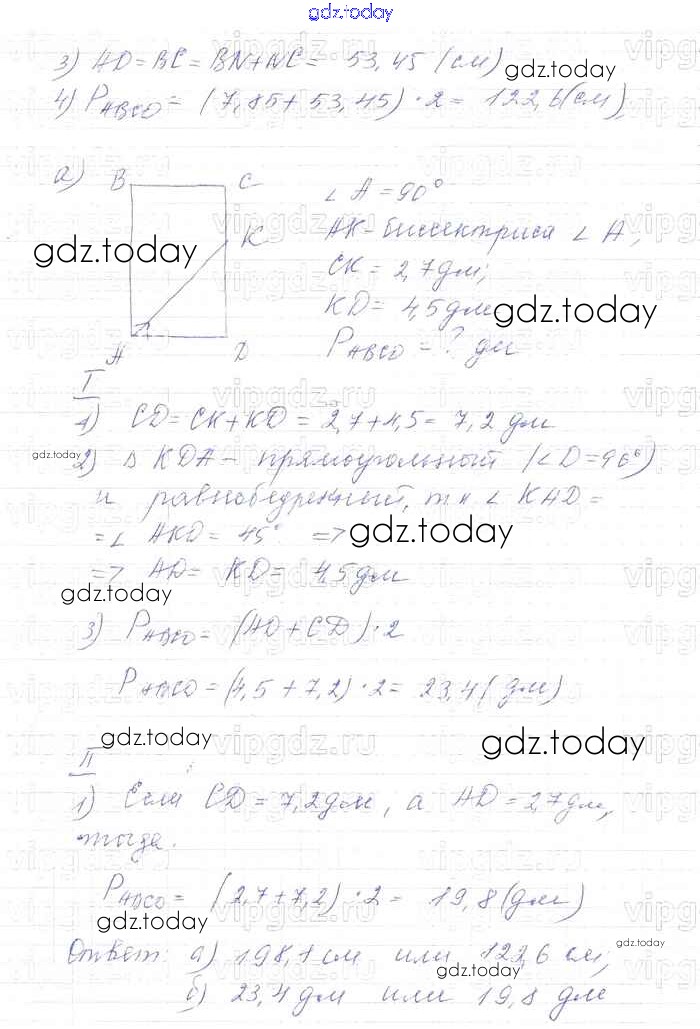 gdz.today
3) AD = BC = BN + NC = 53,45 (см)
gdz.today
4) PABCD = (7,85 + 53,45) · 2 = 122,6 (см)
а) B C
∠ A = 90°
K
AK - биссектриса ∠ A,
gdz.today
CK = 2,7 дм;
KD = 4,5 дм
gdz.today
A D
PABCD = ? дм
I
1) CD = CK + KD = 2,7 + 4,5 = 7,2 дм
gdz.today
2) Δ KDA - прямоугольный (∠ D = 90°)
и равнобедренный, т к ∠ KAD =
= ∠ AKD = 45° =>
gdz.today
=> AD = KD = 4,5 дм
gdz.today
3) PABCD = (AD + CD) · 2
PABCD = (4,5 + 7,2) · 2 = 23,4 (дм)
gdz.today
gdz.today
II
1) Если CD = 7,2 дм, а AD = 2,7 дм,
тогда.
PABCD = (2,7 + 7,2) · 2 = 19,8 (дм)
gdz.today
Ответ: а) 198,1 см или 122,6 см;
gdz.today
gdz.today
б) 23,4 дм или 19,8 дм